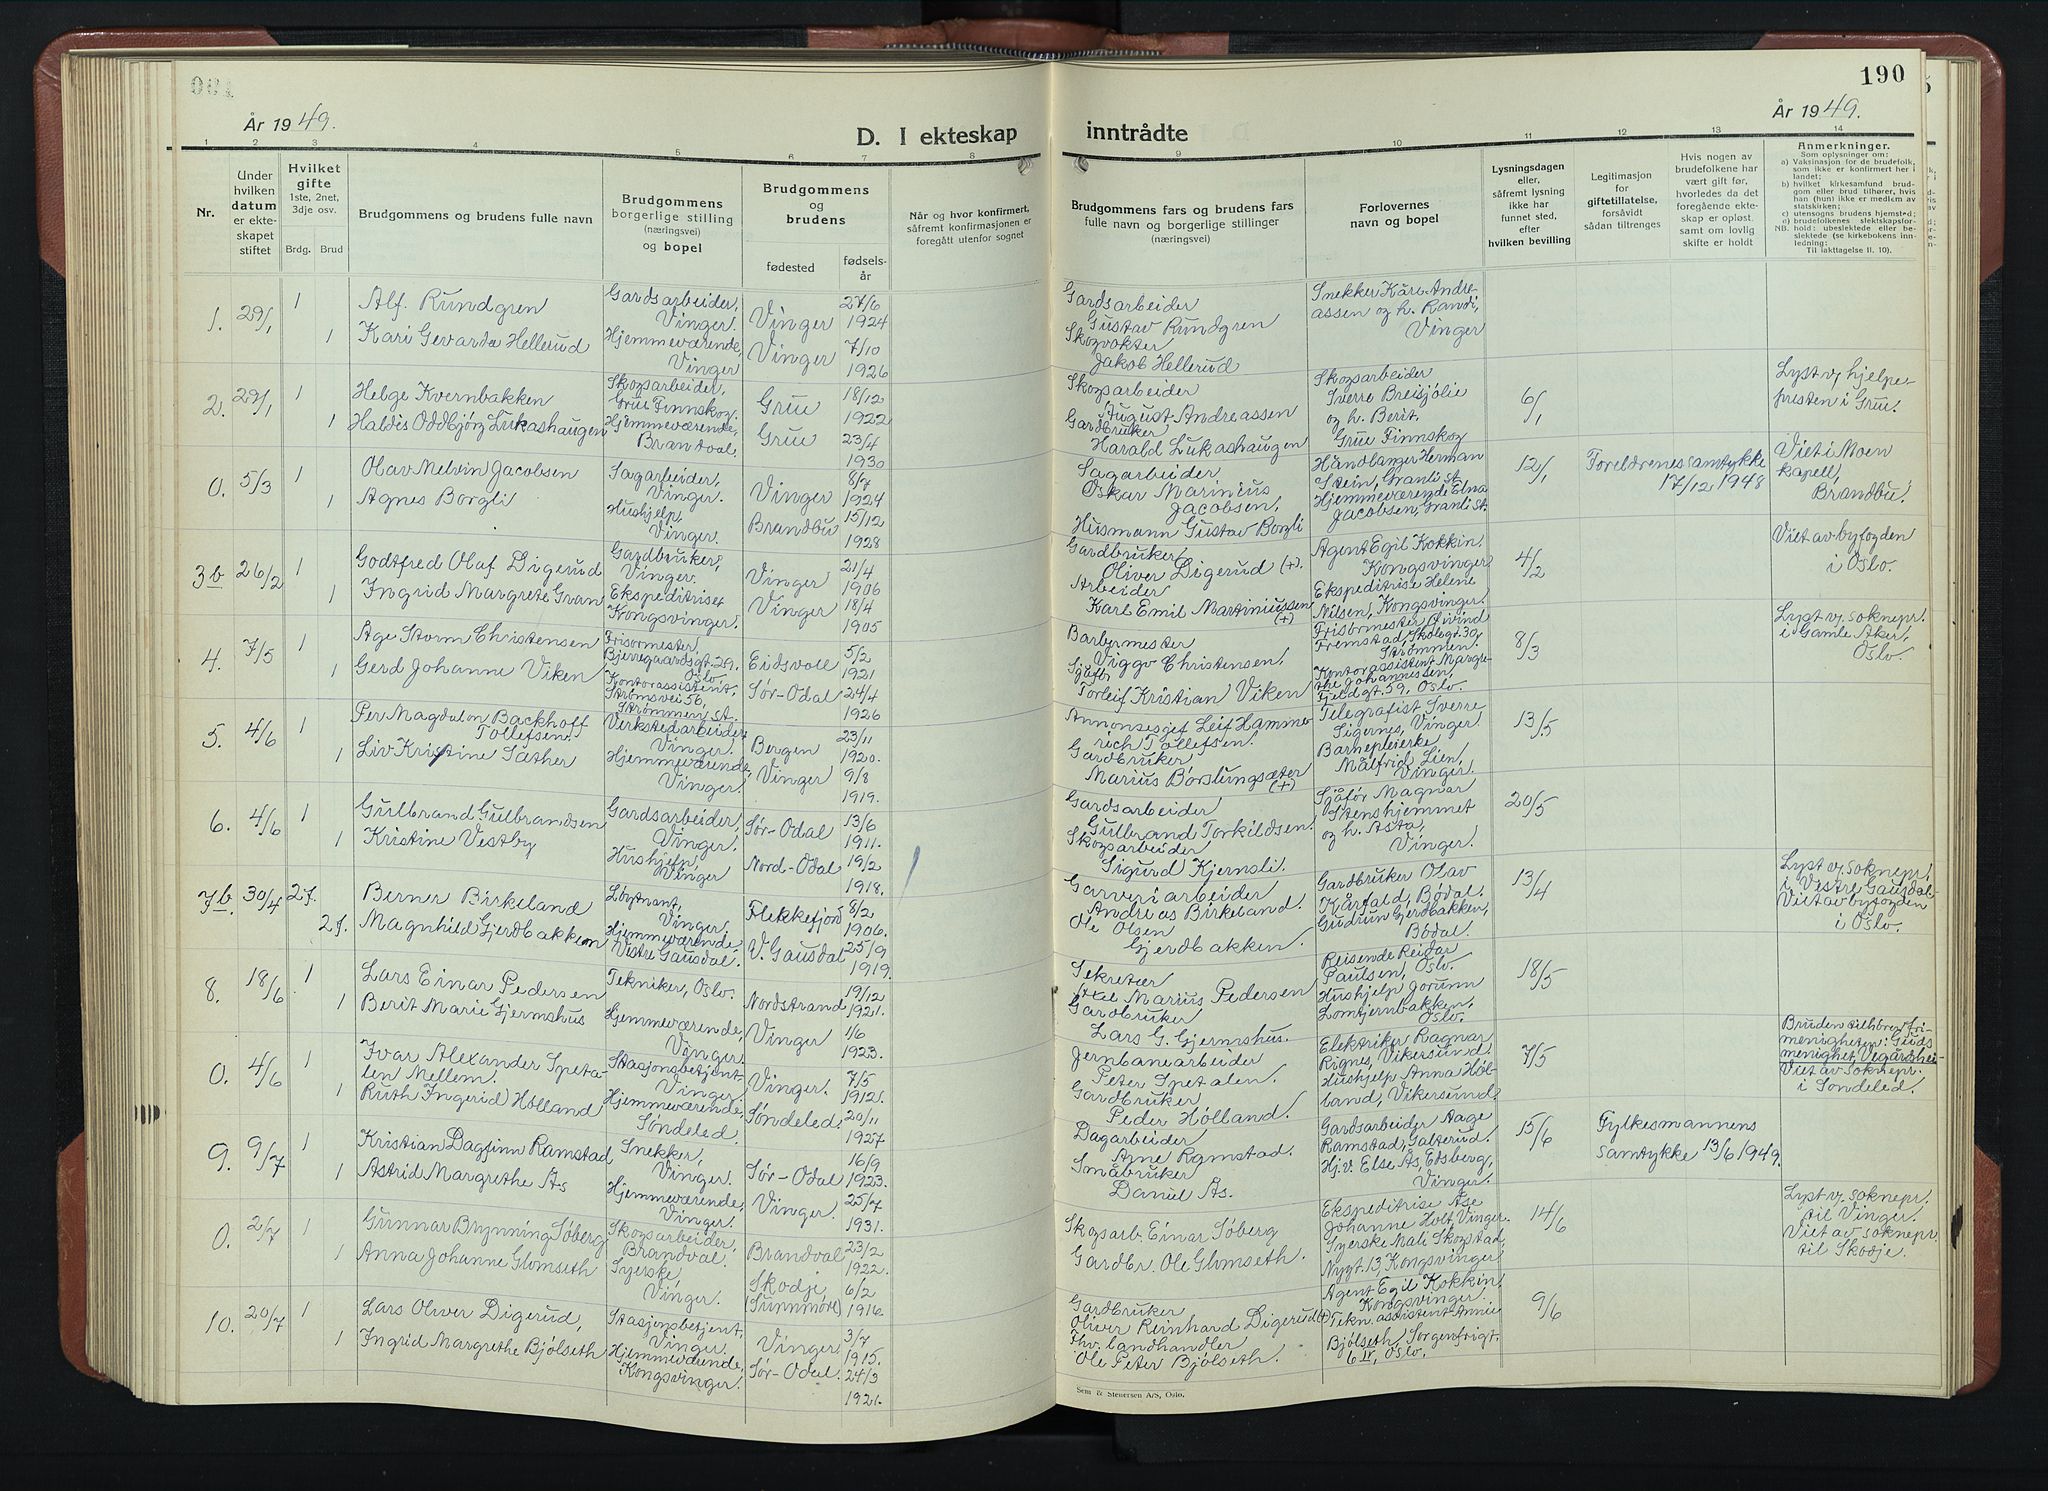 190
År 1949.
År 1949.
D. I ekteskap inntrådte
1 2 3 4 5 6 7 8 9 10 11 12 13 14
Nr.
Under hvilken datum er ekteskapet stiftet
Hvilket gifte
1ste, 2net, 3dje osv.
Brdg. Brud
Brudgommens og brudens fulle navn
Brudgommens borgerlige stilling (næringsvei) og bopel
Brudgommens og brudens
fødested
fødselsår
Når og hvor konfirmert, såfremt konfirmasjonen er foregått utenfor sognet
Brudgommens fars og brudens fars fulle navn og borgerlige stillinger (næringsvei)
Forlovernes navn og bopel
Lysningsdagen eller, såfremt lysning ikke har funnet sted, efter hvilken bevilling
Legitimasjon for giftetillatelse, forsåvidt sådan tiltrenges
Hvis nogen av brudefolkene har vært gift før, hvorledes da det foregående ekteskap er opløst, samt om lovlig skifte er holdt
Anmerkninger.
Som oplysninger om:
a) Vaksinasjon for de brudefolk, som ikke er konfirmert her i landet;
b) hvilket kirkesamfund brudgom eller brud tilhører, hvis han (hun) ikke er medlem av statskirken;
c) utensogns brudens hjemsted;
d) brudefolkenes slektskapsforhold: ubeslektede eller beslektede (se kirkebokens innledning:
Til iakttagelse II. 10).
1. 29/1 1 Alf Rundgren Gardsarbeider, Vinger. Vinger 27/6 1924 Gardsarbeider Gustav Rundgren Snekker Kåre Andreassen og h. Randi, Vinger
1 Kari Gevarda Hellerud Hjemmeværende, Vinger Vinger 7/10 1926 Skogvokter Jakob Hellerud
2. 29/1 1 Helge Kvernbakken Skogsarbeider, Grue Finnskog. Grue 18/12 1922 Skogsarbeider August Andreassen Skogsarbeider Sverre Breisjølie og h. Berit, Grue Finnskog 6/1 Lyst v/ hjelpepresten i Grue.
1 Haldis Oddbjørg Lukashaugen Hjemmeværende, Brandval. Grue 23/4 1930 Gardbruker Harald Lukashaugen
0. 5/3 1 Olav Melvin Jacobsen Sagarbeider, Vinger. Vinger 8/7 1924 Sagarbeider Oskar Marinius Jacobsen, Håndlanger Herman Stein, Granli st. Hjemmeværende Elna Jacobsen, Granli st. 12/1 Foreldrenes samtykke 17/12 1948 Viet i Moen kapell, Brandbu.
1 Agnes Borgli Hushjelp, Vinger. Brandbu 15/12 1928 Husmann Gustav Borgli
3b 26/2 1 Godtfred Olaf Digerud Gardbruker, Vinger. Vinger 21/4 1906 Gardbruker Oliver Digerud (+). Agent Egil Kokkin, Kongsvinger Ekspeditrise Helene Nilsen, Kongsvinger. 4/2 Viet av byfogden i Oslo.
1 Ingrid Margrete Gran Ekspeditrise Kongsvinger. Vinger 18/4 1905 Arbeider Karl Emil Martiniussen (+)
4. 7/5 1 Åge Storm Christensen Frisørmester, Bjerregaardsgt. 29, Oslo Eidsvoll 5/2 1921 Barbermester Viggo Christensen, Frisørmester Øivind Fremstad, Skolegt. 30, Strømmen. Kontorassistent Margrethe Johannessen, Fjeldgt. 59, Oslo. 8/3 Lyst v. soknepr. i Gamle Aker, Oslo.
1 Gerd Johanne Viken Kontorassistent, Strømsvei 56, Strømmen st. Sør-Odal 24/4 1926 Sjåfør Torleif Kristian Viken
5. 4/6 1 Per Magdalon Backhoff Tollefsen. Verkstedarbeider Vinger. Bergen 23/11 1920. Annonsesjef Leif Hammerich Tollefsen. Telegrafist Sverre Sigernes, Vinger Barnepleierske Målfrid Lien, Vinger. 13/5
1 Liv Kristine Sæther Hjemmeværende, Vinger. Vinger 9/8 1919. Gardbruker Marius Børslungsæter (+)
6. 4/6 1 Gulbrand Gulbrandsen Gardsarbeider, Vinger. Sør-Odal 13/6 1911. Gardsarbeider Gulbrand Torkildsen. Sjåfør Magnar Stenshjemmet og h. Asta, Vinger. 20/5
1 Kristine Vestby Hushjelp, Vinger Nord-Odal 19/2 1918. Skogsarbeider Sigurd Kjernsli.
7b 30/4 2f. Berner Birkeland Løytnant, Vinger. Flekkefjord 8/2 1906. Garveriarbeider Andreas Birkeland. Gardbruker Olav Kårfald, Bødal. Gudrun Gjerdbakken, Bødal. 13/4 Lyst v. soknepr. i Vestre Gausdal. Viet av byfogden i Oslo.
2f. Magnhild Gjerdbakken Hjemmeværende Vestre Gausdal. V. Gausdal 25/9 1919. Ole Olsen Gjerdbakken.
8. 18/6 1 Lars Einar Pedersen Tekniker, Oslo. Nordstrand 19/12 1921. Sekretær Marius Pedersen Reisende Reidar Paulsen, Oslo. Hushjelp Jorunn Lomtjernbakken, Oslo. 18/5
1 Berit Marie Gjermshus Hjemmeværende, Vinger. Vinger 1/6 1923. Gardbruker Lars G. Gjermshus.
0. 4/6 1 Ivar Alexander Spetalen Mellem. Stasjonsbetjent Vinger. Vinger. 7/5 1912. Jernbanearbeider Peter Spetalen. Elektriker Ragnar Rignes, Vikersund. Hushjelp Anna Holland, Vikersund. 7/5 Bruden tilhører Frimenigheten: Guds menighet Vegårshei. Viet av soknepr. i Søndeled.
1 Ruth Ingerid Holland Hjemmeværende, Søndeled. Søndeled. 20/11 1927 Gardbruker Peder Holland.
9. 9/7 1 Kristian Dagfinn Ramstad Snekker, Vinger. Sør-Odal 16/9 1923. Dagarbeider Arne Ramstad. Gardsarbeider Aage Ramstad, Galterud. Hj.v. Else Ås, Edsberg, Vinger. 15/6 Fylkesmannens samtykke 13/6 1949.
1 Astrid Margrethe Ås Hjemmeværende, Vinger. Vinger. 25/7 1931. Småbruker Daniel Ås.
0. 2/7 1 Gunnar Brynning Søberg Skogsarbeider, Brandval. Brandval 23/2 1922. Skogsarb. Einar Søberg Ekspeditrise Åse Johanne Holt, Vinger. Syerske Mali Skogstad, Nygt. 13, Kongsvinger 14/6 Lyst v. soknepr. til Vinger. Viet av soknepr. til Skodje.
1 Anna Johanne Glomseth Syerske, Vinger. Skodje, (Sunnmøre) 6/2 1916. Gardbr. Ole Glomseth.
10. 20/7 1 Lars Oliver Digerud, Stasjonsbetjent, Vinger. Vinger 3/7 1915. Gardbruker Oliver Reinhard Digerud (+) Agent Egil Kokkin, Kongsvinger. Tekn. assistent Annie Bjølseth, Sorgenfrigt. 6 IV, Oslo. 9/6
1 Ingrid Margrethe Bjølseth Hjemmeværende, Kongsvinger. Sør-Odal. 24/3 1921. Fhv. landhandler Ole Peter Bjølseth.
Sem & Stenersen A/S, Oslo.